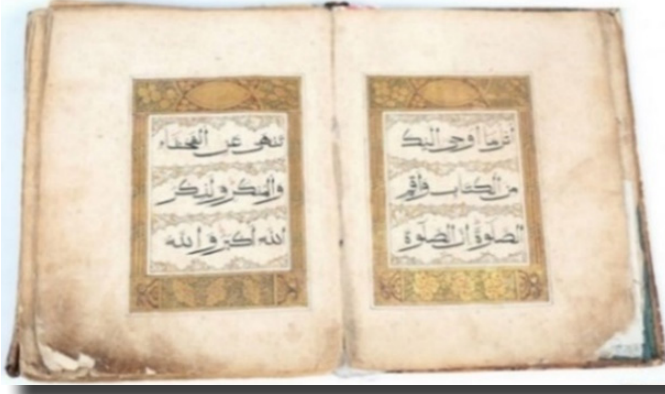 اتل ما اوحى اليك
من الكتاب واقم
الصلوة ان الصلوة
تنهى عن الفحشاء
والمنكر ولذكر
الله اكبر والله